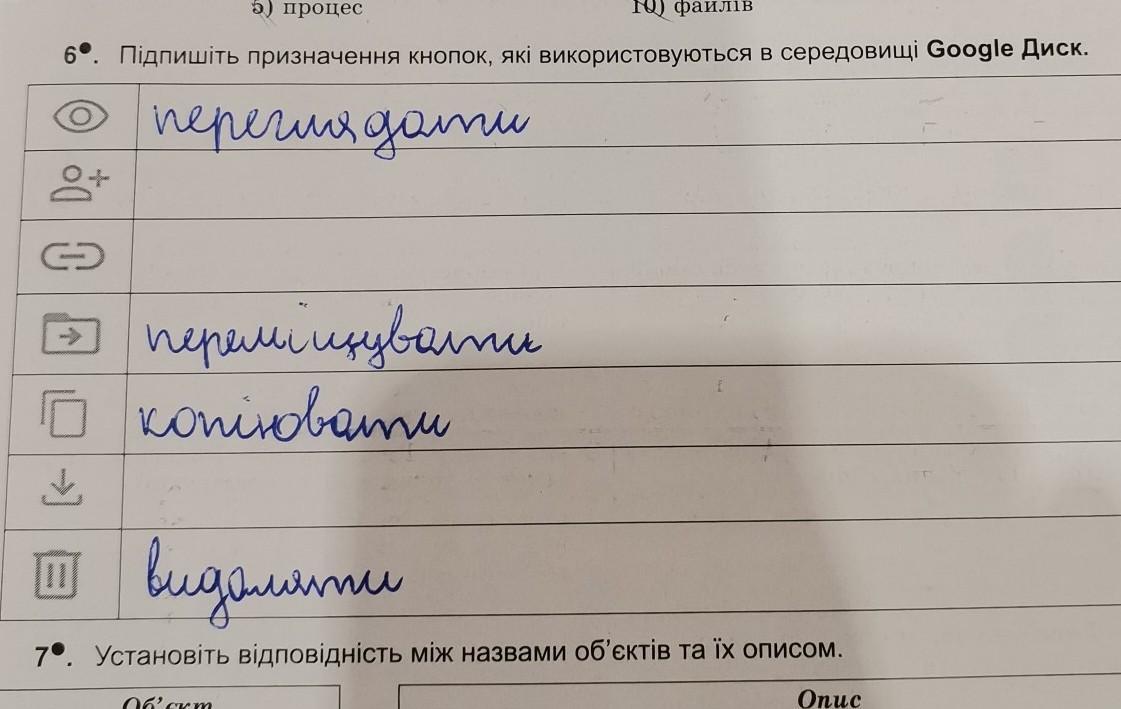 5) процес
10) файлів
6●. Підпишіть призначення кнопок, які використовуються в середовищі Google Диск.
переглядати
переміщувати
копіювати
видаляти
7●. Установіть відповідність між назвами об’єктів та їх описом.
Об’єкт
Опис